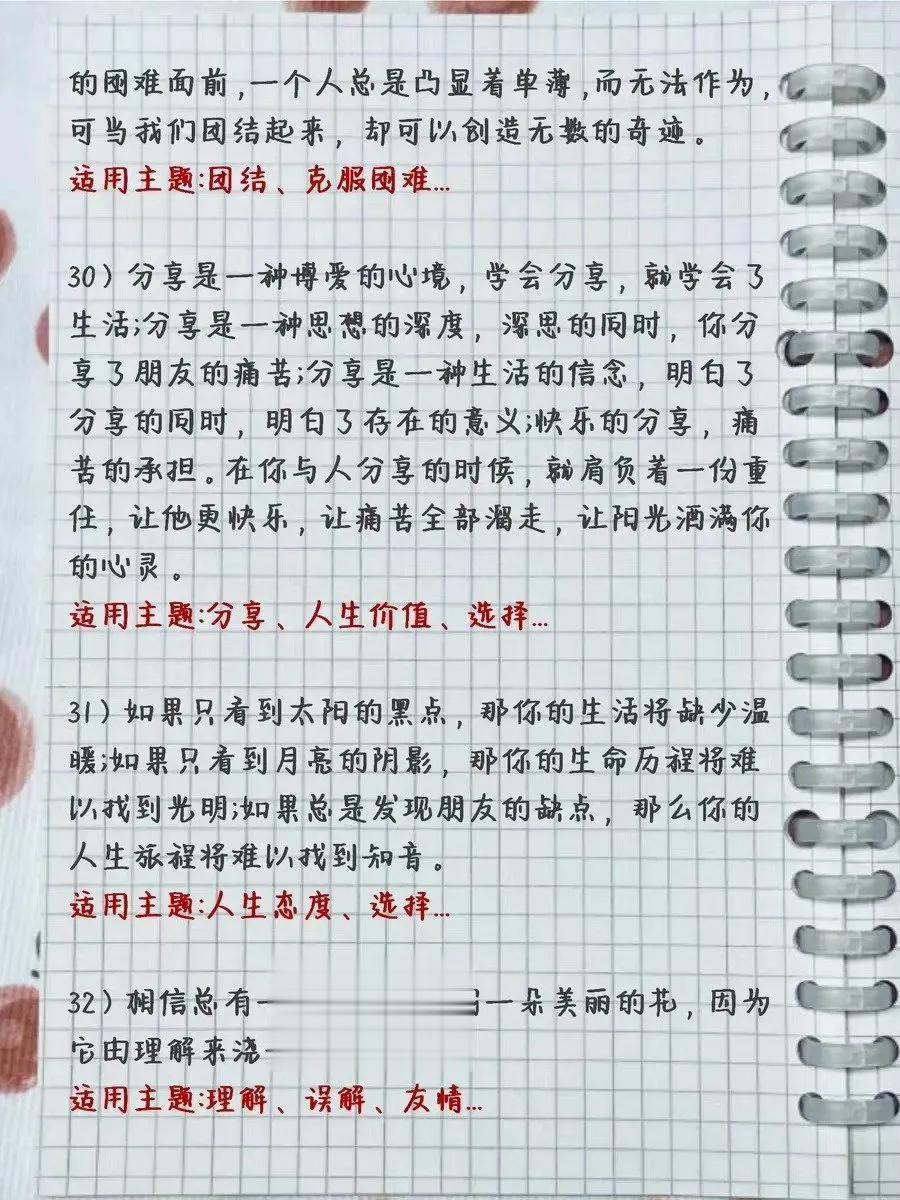 的困难面前,一个人总是凸显着单薄,而无法作为,
可当我们团结起来，却可以创造无数的奇迹。
适用主题:团结、克服困难...
30）分享是一种博爱的心境，学会分享，就学会了
生活;分享是一种思想的深度，深思的同时，你分
享了朋友的痛苦;分享是一种生活的信念，明白了
分享的同时，明白了存在的意义;快乐的分享，痛
苦的承担。在你与人分享的时候，就肩负着一份重
任，让他更快乐，让痛苦全部溜走，让阳光洒满你
的心灵。
适用主题:分享、人生价值、选择...
31）如果只看到太阳的黑点，那你的生活将缺少温
暖;如果只看到月亮的阴影，那你的生命历程将难
以找到光明;如果总是发现朋友的缺点，那么你的
人生旅程将难以找到知音。
适用主题:人生态度、选择...
32）相信总有一朵美丽的花，因为
它由理解来浇
适用主题:理解、误解、友情...